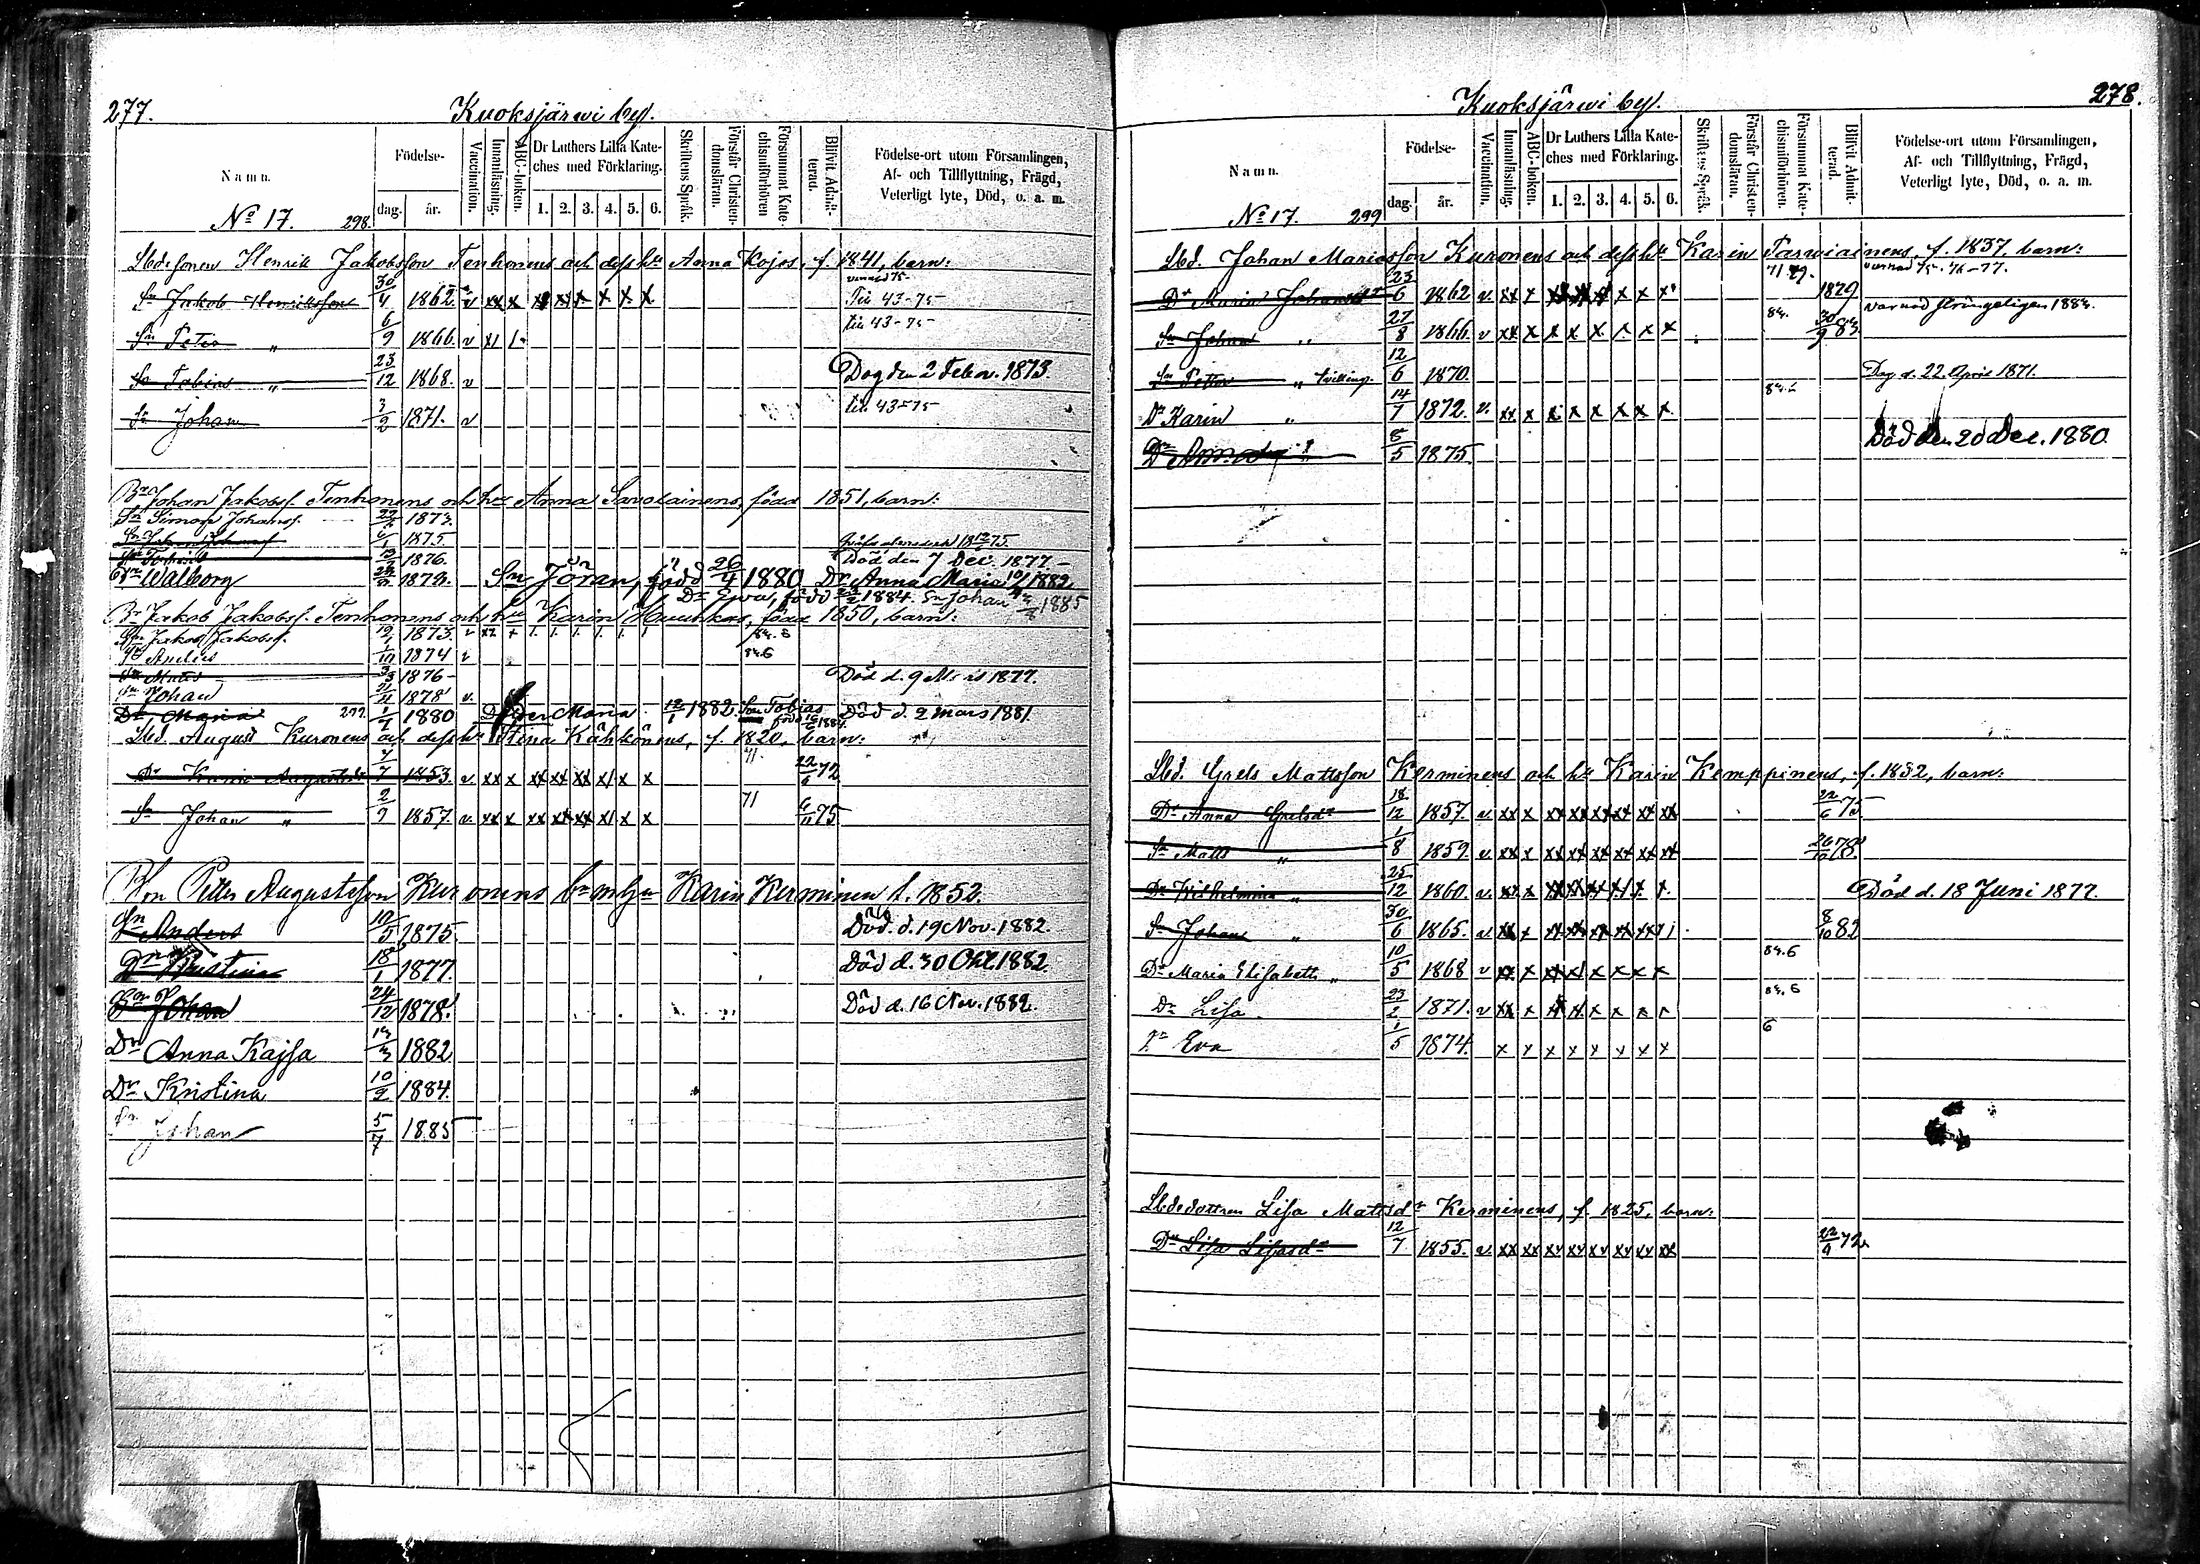 277.
Kuoksjärwi by.
Namn.
Födelse-
dag. år.
Vaccination.
Innanläsning.
ABC-boken.
Dr Luthers Lilla Kate-
ches med Förklaring.
1. 2. 3. 4. 5. 6.
Skriftens Språk.
Förstår Christen-
domsläran.
Försummat Kate-
chismiförhören
Blifvit Admit-
terad.
Födelse-ort utom Församlingen,
Af- och Tillflyttning, Frägd,
Veterligt lyte, Död, o. a. m.
No 17. 298.
Lbdesonen Henrik Jakobsson Tenhonens och dess hu Anna Kojos, f. 1841, barn:
Sn Jakob Henriksson 30/4 1862 v xx x x x x x x x Till 43-75
Sn Petter " 6/9 1866. v till 43-75
Sn Tobias " 23/12 1868. v Dog den 2 Febr. 1873.
Sn Johan 3/2 1871. v till 43-75
Br Johan Jakobss. Tenhonens och hu Anna Savolainens, född 1851, barn:
Sn Simon Johanss. 1873.
1875.
1876. Död den 7 Dec. 1877.
Dr Walborg 1879. Sn Jöran, född 26/4 1880 Dr Anna Maria 1882
Dr Eva, född 1884. Sn Johan 1885
Br Jakob Jakobss. Tenhonens och hu Karin Huuhkas, född 1850, barn:
Sn Jakob Jakobss. 1873. v
1874 v
Sn Matts 3/3 1876 Död d. 9 1877.
Sn Johan 1878 v.
Dr Maria 277. 1880 Maria 1882. Son Tobias Död d. 2 mars 1881.
Lbd. August Kuronens och dess hu Stina Kähkönens, f. 1820, barn:
71.
Dr Karin Augustsdr 7/7 1853. v xx x xx xx xx x x x 72
Sn Johan " 2/9 1857. v. xx x xx xx xx x x x 71 6/11 75
Son Petter Augustsson Kuronens hu Karin Kerminen f. 1852.
Sn Anders 1875. Död. d. 19 Nov. 1882.
Dr Kristina 18/1 1877. Död d. 30 Okt 1882.
Son Johan 24/12 1878. Död d. 16 Nov. 1882.
Dr Anna Kajsa 1882
Dr Kristina 10/2 1884.
Sn Johan 5/7 1885
278.
Kuoksjärwi by.
Namn.
Födelse-
dag. år.
Vaccination.
Innanläsning.
ABC-boken.
Dr Luthers Lilla Kate-
ches med Förklaring.
1. 2. 3. 4. 5. 6.
Skriftens Språk.
Förstår Christen-
domsläran.
Försummat Kate-
chismiförhören.
Blifvit Admit-
terad.
Födelse-ort utom Församlingen,
Af- och Tillflyttning, Frägd,
Veterligt lyte, Död, o. a. m.
No 17. 299
Lbd. Johan Mariasson Kuronens och dess hu Karin Parwiainens, f. 1837, barn:
Dr Maria Johansdr 23/6 1862 v. xx x xx xx xx x x x 1879
Sn Johan " 27/8 1866. v xx x x x x x x x 84. 30/9 83. 1884.
Sn Petter " tvilling. 12/6 1870. Dog d. 22 April 1871.
Dr Karin " 14/7 1872. v. xx x x x x x x x
Dr Anna 8/5 1875. Död den 20 Dec. 1880.
Lbd. Grels Mattsson Kerminens och hu Karin Kemppinens, f. 1832, barn:
Dr Anna Grelsdr 18/12 1857. v. xx x xx xx xx xx xx xx 22/6 75
Sn Matts " 1/8 1859. v xx x xx xx xx xx xx xx 78.
Dr Wilhelmina " 25/12 1860. v. xx x Död d. 18 Juni 1877.
Sn Johan " 30/6 1865. v xx x 8/10 82
Dr Maria Elisabeth " 10/5 1868 v xx x xx x x x x x 84.6
Dr Lisa 23/2 1871. v xx x 84. 6
Dr Eva 1/5 1874. x x x x x x x x 6
Lbdedottren Lisa Mattsdr Kerminens, f. 1825, barn:
Dr Lisa Lisasdr 12/7 1855. v. xx xx xx xx xx xx xx xx 72.